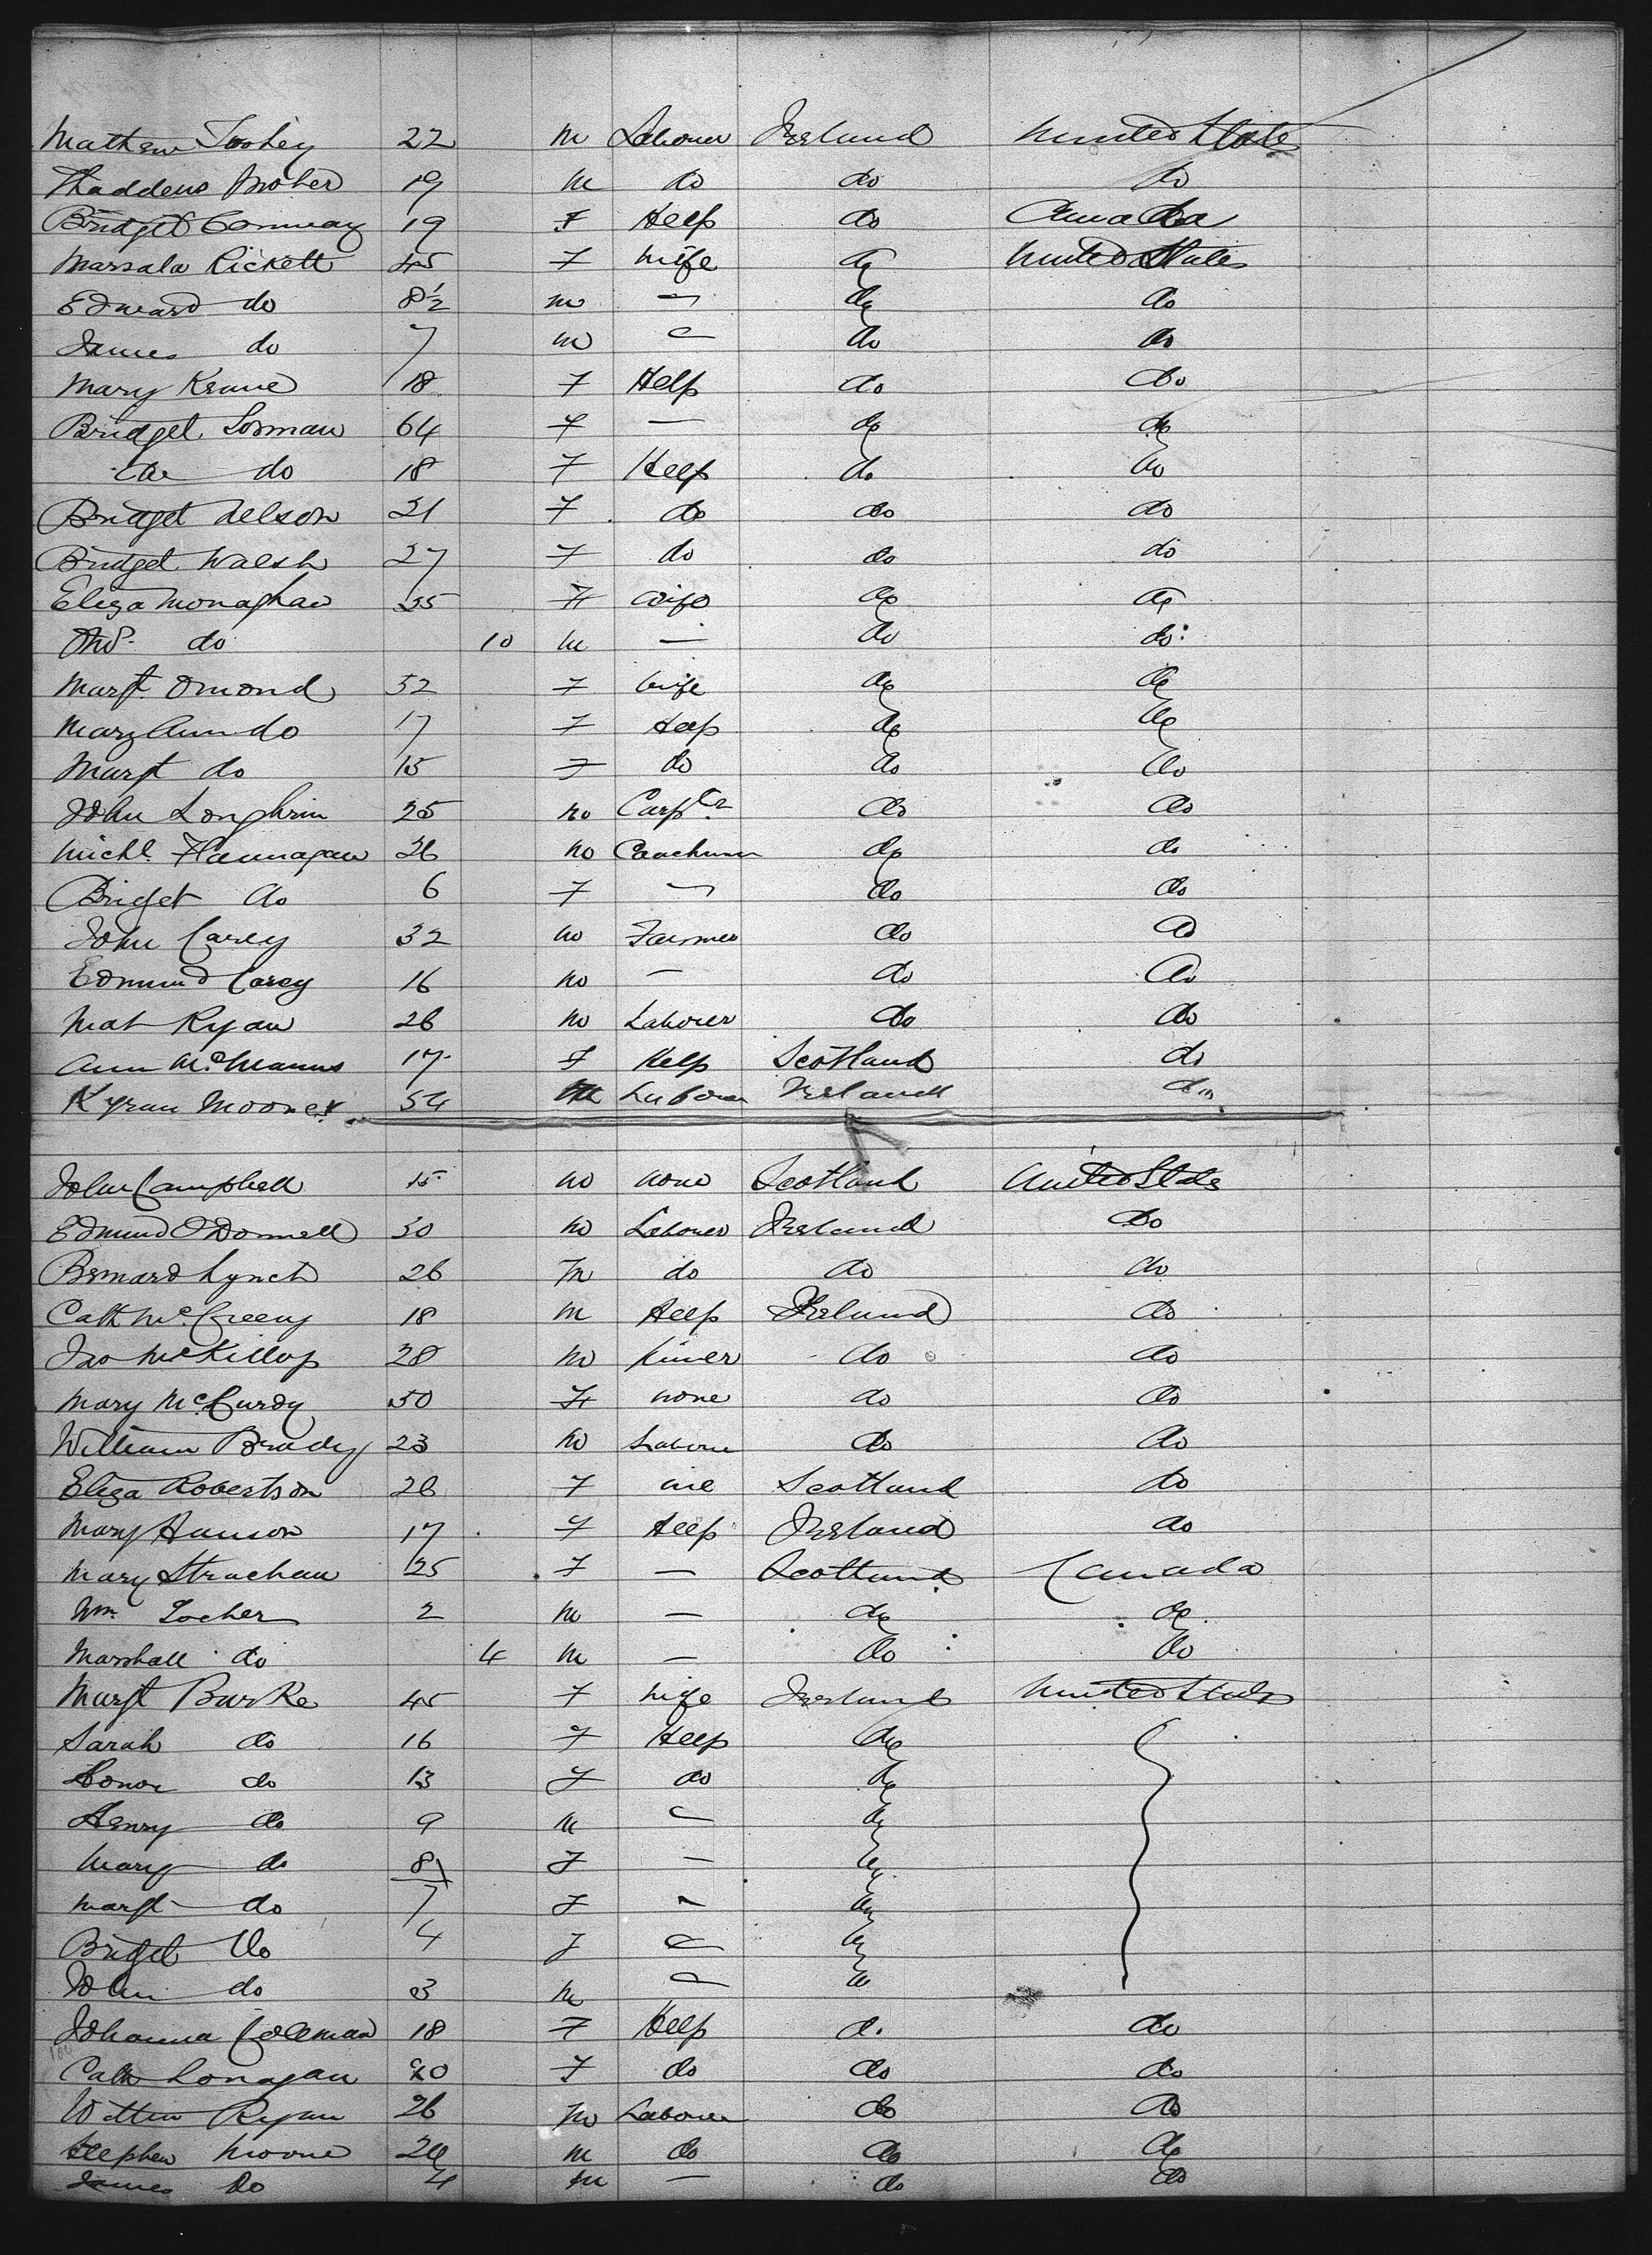 Mathew Toohey 22 M Labourer Ireland United States
Thaddeus Maher 19 M do do do
Bridget Conway 19 F Help do Canada
Marsala Rickett 45 F Wife do United States
Edward do 8½ M — do do
James do 7 M — do do
Mary Keane 18 F Help do do
Bridget Lorman 64 F — do do
do do 18 F Help do do
Bridget Nelson 21 F do do do
Bridget Walsh 27 F do do do
Eliza Monaghan 35 F Wife do do
do 10 M — do do
Margt Omond 32 F Wife do do
Mary Ann do 17 F Help do do
Margt do 15 F do do do
John Loughrin 25 M Carptr do do
Michl Flannagan 26 M Coachman do do
Briget do 6 F — do do
John Carey 32 M Farmer do do
Edmund Carey 16 M — do do
Mat Ryan 26 M Laborer do do
Ann McManus 17 F Help Scotland do
Kyran Mooney 54 M Laborer Ireland do
John Campbell 15 M None Scotland United States
Edmund O'Donnell 30 M Labourer Ireland do
Bernard Lynch 26 M do do do
Cath McGreevy 18 M Help Ireland do
Jas McKillop 28 M Miner do do
Mary McCurdy 50 F none do do
William Brady 23 M Laborer do do
Eliza Robertson 26 F Scotland do
Mary Hanson 17 F Help Ireland do
Mary Strachan 25 F — Scotland Canada
Wm. Locher 2 M — do do
Marshall do 4 M — do do
Margt Burke 45 F Wife Ireland United States
Sarah do 16 F Help do
Honor do 13 F do do
Henry do 9 M — do
Mary do 8 F — do
Margt do 7 F — do
Briget do 4 F — do
John do 3 M — do
Johanna Coleman 18 F Help do do
Cath Lonagan 20 F do do do
Ryan 26 M Laborer do do
Stephen Moone M do do do
James do 4 M — do do